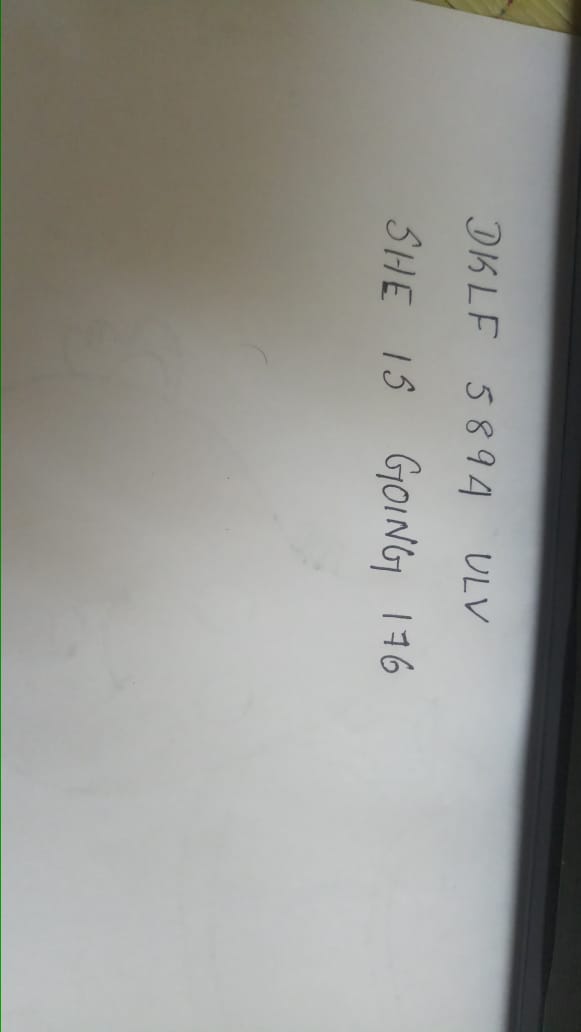 DKLF 5894 ULV
SHE IS GOING 176